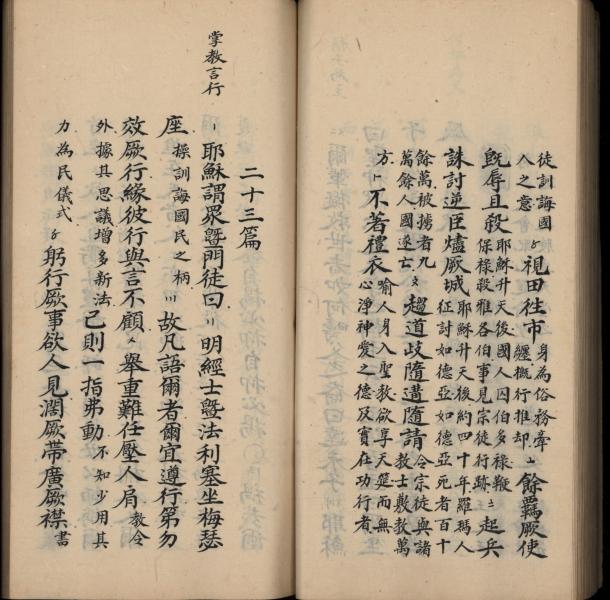 徒訓誨國
人之意〥視田往市身為俗務牽
纏概行推却〦餘羈厥使
旣辱且殺耶穌升天後國人囚伯多祿鞭
保祿殺雅各伯事見宗徒行蹟〧起兵
誅討逆臣燼厥城耶穌升天後約四十年羅瑪人
征討如德亞如德亞死者百十
餘萬被擄者九
萬餘人國遂亡〨趨道歧隨遘隨請令宗徒與諸
教士敷教萬
方〡不著禮衣喻人身入聖教欲享天筵而無
心淨神愛之德及實在功行者
二十三篇
〡耶穌謂眾曁門徒曰〢明經士曁法利塞坐梅瑟
座操訓誨
國民之柄〣故凡語爾者爾宜遵行第勿
效厥行緣彼行與言不顧〤舉重難任壓人肩教令
外據其思議增多新法己則一指弗動不知少用其
力為民儀式〥躬行厥事欲人見濶厥帶廣厥襟書
掌教言行